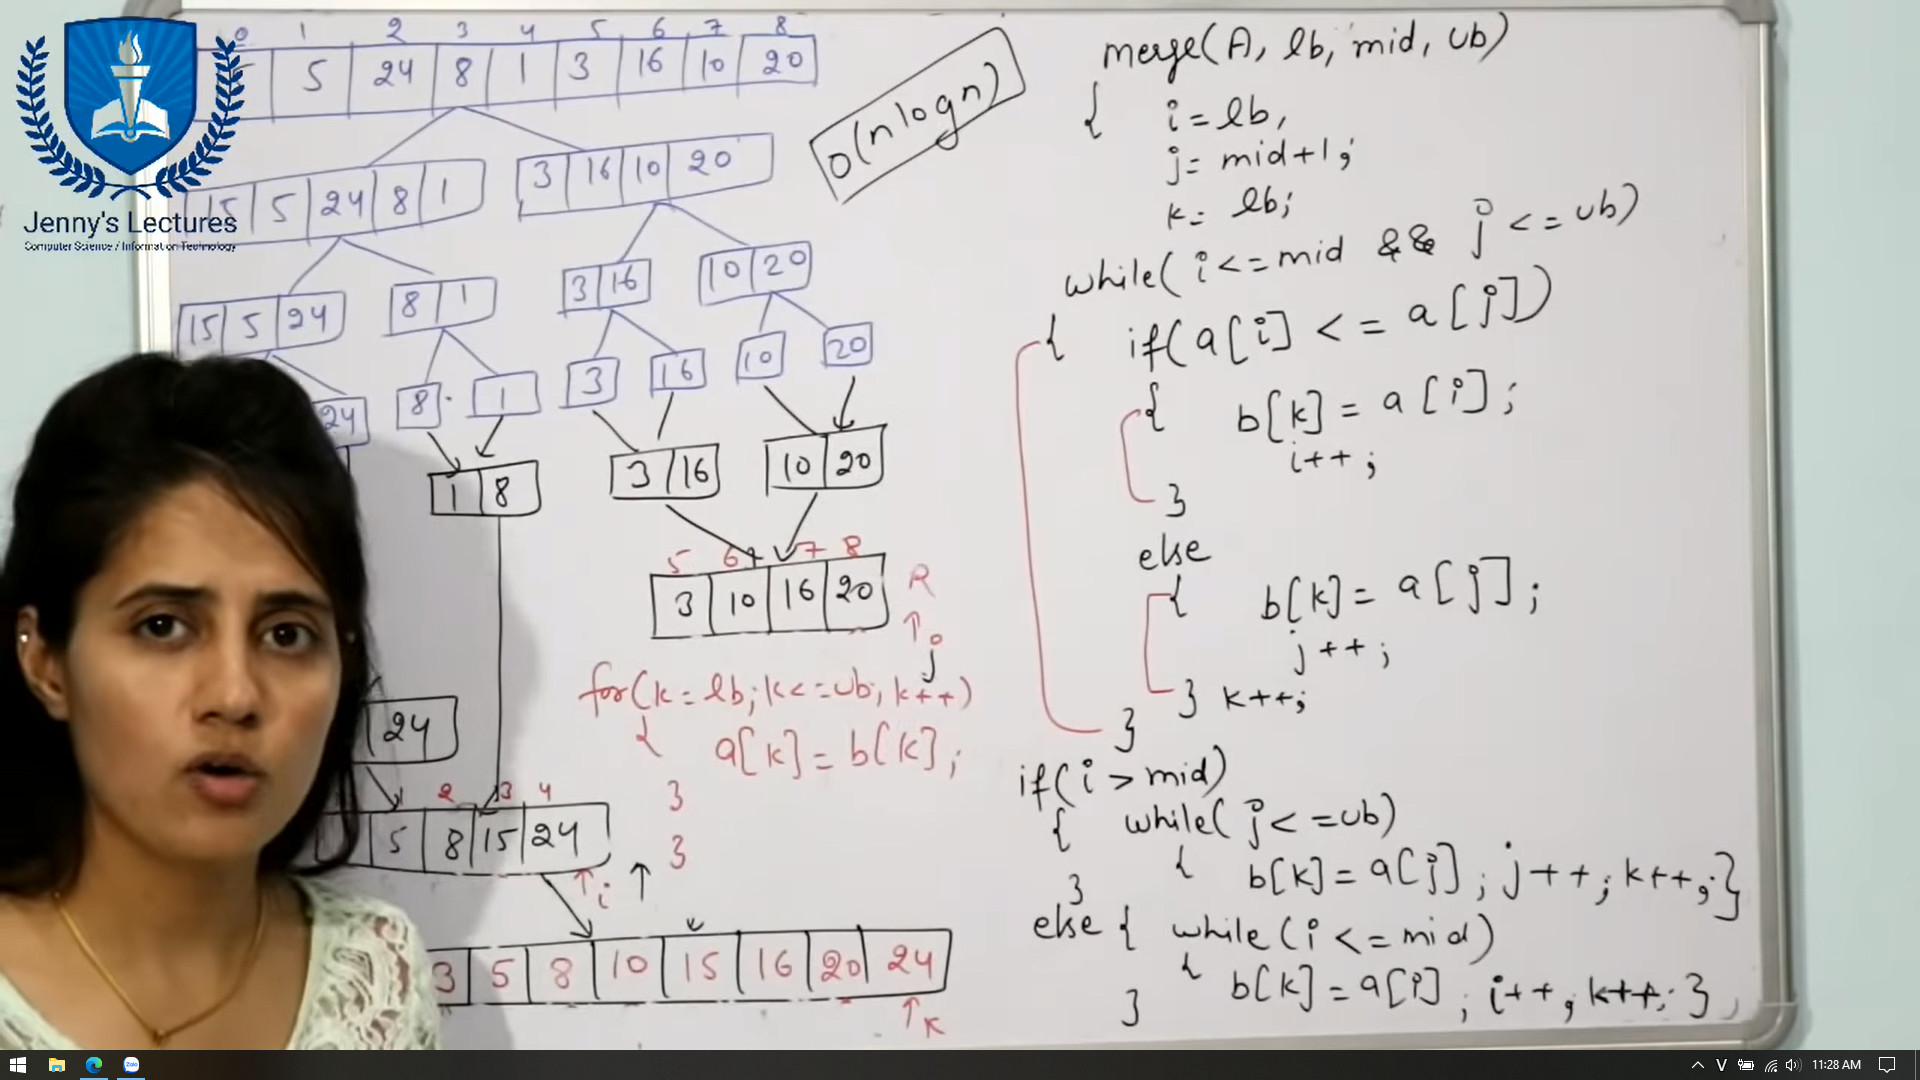 Jenny's Lectures
Computer Science / Information Technology
0 1 2 3 4 5 6 7 8
5 24 8 1 3 16 10 20
O(nlogn)
15 5 24 8 1
3 16 10 20
15 5 24
8 1
3 16
10 20
24
8
1
3
16
10
20
1 8
3 16
10 20
5 6 7 8
3 10 16 20 R
j
for(k=lb; k<=ub; k++)
{ a[k]=b[k];
}
}
24
2 3 4
5 8 15 24
i
3 5 8 10 15 16 20 24
k
merge(A, lb, mid, ub)
{ i=lb,
j= mid+1;
k= lb;
while( i<=mid && j <=ub)
{ if(a[i] <= a[j])
{ b[k]= a[i];
i++;
}
else
{ b[k]= a[j];
j++;
} k++;
}
if(i > mid)
{ while( j<=ub)
{ b[k]=a[j]; j++; k++; }
}
else { while(i<=mid)
{ b[k]=a[i]; i++, k++; }
}
V
11:28 AM